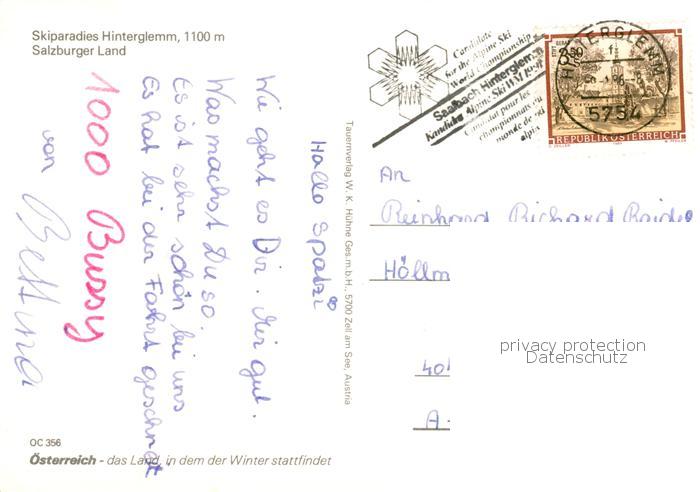 Skiparadies Hinterglemm, 1100 m
Salzburger Land
Hallo Spatzi
Wie geht es Dir. Mir gut.
Was machst Du so.
Es ist sehr schön bei uns
Es hat bei der Fahrt geschneit
1000 Bussy
von Bettina
OC 356
Österreich - das Land, in dem der Winter stattfindet
Tauernverlag W. K. Hühne Ges.m.b.H., 5700 Zell am See, Austria
Candidate
for the Alpine Ski
World Championship
Saalbach Hinterglemm
Kandidat Alpine Ski WM
Candidat pour les
championnats du
monde de ski
alpin
HINTERGLEMM
5754
3.50
REPUBLIK ÖSTERREICH
An
Reinhard Richard
Höllm
40
A.
privacy protection
Datenschutz